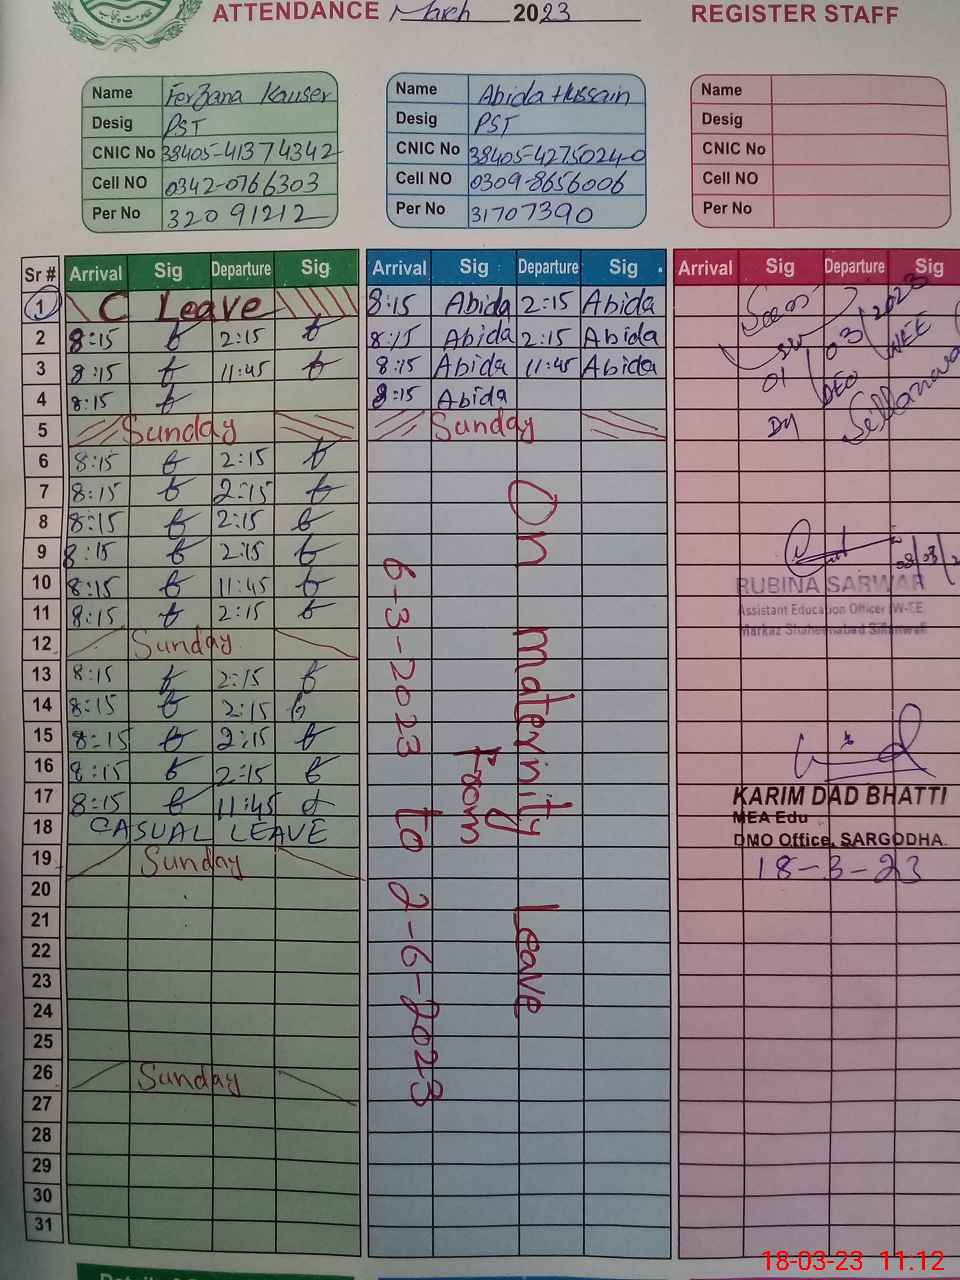 ATTENDANCE March 2023 REGISTER STAFF
Name Ferzana Kauser
Desig PST
CNIC No 38405-4137434 2
Cell NO 0342-0766303
Per No 32091212
Name Abida Hussain
Desig PST
CNIC No 38405-4275024-0
Cell NO 0309-8656006
Per No 31707390
Name
Desig
CNIC No
Cell NO
Per No
Sr # Arrival Sig Departure Sig Arrival Sig Departure Sig Arrival Sig Departure Sig
1 C Leave 8:15 Abida 2:15 Abida
2 8:15 2:15 8:15 Abida 2:15 Abida
3 8:15 11:45 8:15 Abida 11:45 Abida
4 8:15 8:15 Abida
5 Sunday Sunday
6 8:15 2:15
7 8:15 2:15
8 8:15 2:15
9 8:15 2:15
10 8:15 11:45
11 8:15 2:15
12 Sunday
13 8:15 2:15
14 8:15 2:15
15 8:15 2:15
16 8:15 2:15
17 8:15 11:45
18 CASUAL LEAVE
19 Sunday
20
21
22
23
24
25
26 Sunday
27
28
29
30
31
On maternity Leave
From
6-3-2023 to 2-6-2023
Seen
01 03/2023
Dy DEO WEE
Sillanwali
RUBINA SARWAR
Assistant Education Officer (W-EE
Markaz Shaheenabad Sillanwali
KARIM DAD BHATTI
MEA Edu
DMO Office, SARGODHA.
18-3-23
18-03-23 11.12